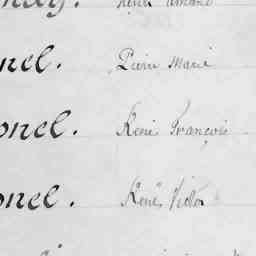 nel. Pierre Marie
onel. René François
onel. René Victor